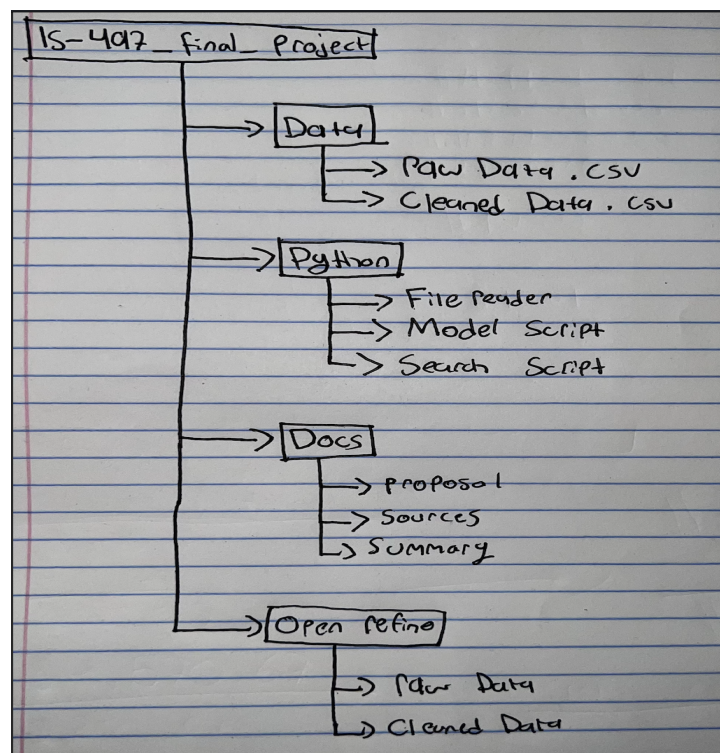 IS-497_final_Project
Data
Raw Data.csv
Cleaned Data.csv
Python
File reader
Model Script
Search Script
Docs
proposal
Sources
Summary
Open refine
Raw Data
Cleaned Data